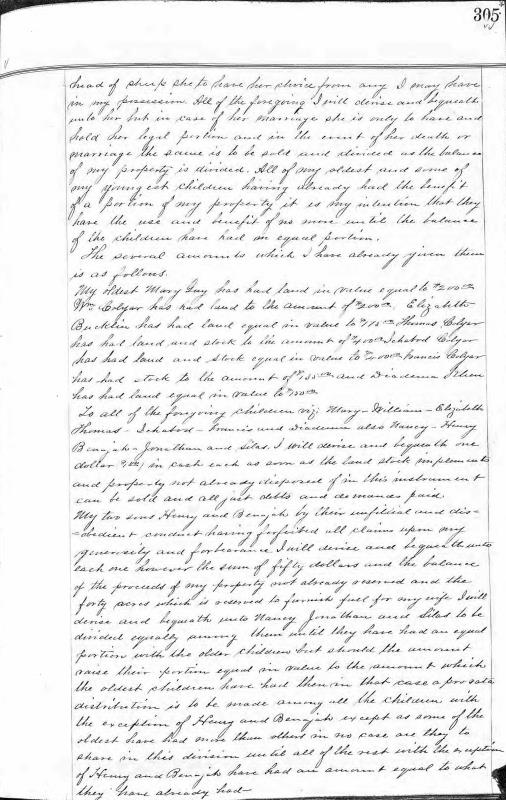 305
head of sheep she to have her choice from any I may have
in my possession. All of the foregoing I will devise and bequeath
unto her but in case of her marriage she is only to have and
hold her legal portion and in the event of her death or
marriage the same is to be sold and divided as the balance
of my property is divided. All of my oldest and some of
my youngest children having already had the benefit
of a portion of my property it is my intention that they
have the use and benefit of no more until the balance
of the children have had an equal portion.
The several amounts which I have already given them
is as follows.
My oldest Mary Guy has had land in value equal to $200.00
Wm Colyar has had land to the amount of $200.00 Elizabeth
Bucklin has had land equal in value to $115.00 Thomas Colyar
has had land and stock to the amount of $400.00 Ichabod Colyar
has had land and stock equal in value to $200.00 Francis Colyar
has had stock to the amount of $135.00 and Diadema
has had land equal in value to $150.00
To all of the foregoing children viz; Mary - William - Elizabeth
Thomas - Ichabod - Francis and Diadema also Nancy - Henry
Benajah - Jonathan and Silas. I will devise and bequeath one
dollar in cash each as soon as the land stock implements
and property not already disposed of in this instrument
can be sold and all just debts and demands paid.
My two sons Henry and Benajah by their unfilial and dis=
=obedient conduct having forfeited all claims upon my
generosity and forbearance I will devise and bequeath unto
each one however the sum of fifty dollars and the balance
of the proceeds of my property not already reserved and the
forty acres which is reserved to furnish fuel for my wife I will
devise and bequath unto Nancy Jonathan and Silas to be
divided equally among them until they have had an equal
portion with the older children but should the amount
raise their portion equal in value to the amount which
the oldest children have had then in that case a pro rata
distribution is to be made among all the children with
the exception of Henry and Benajah except as some of the
oldest have had more than others in no case are they to
share in this division until all of the rest with the exception
of Henry and Benajah have had an amount equal to what
they have already had-